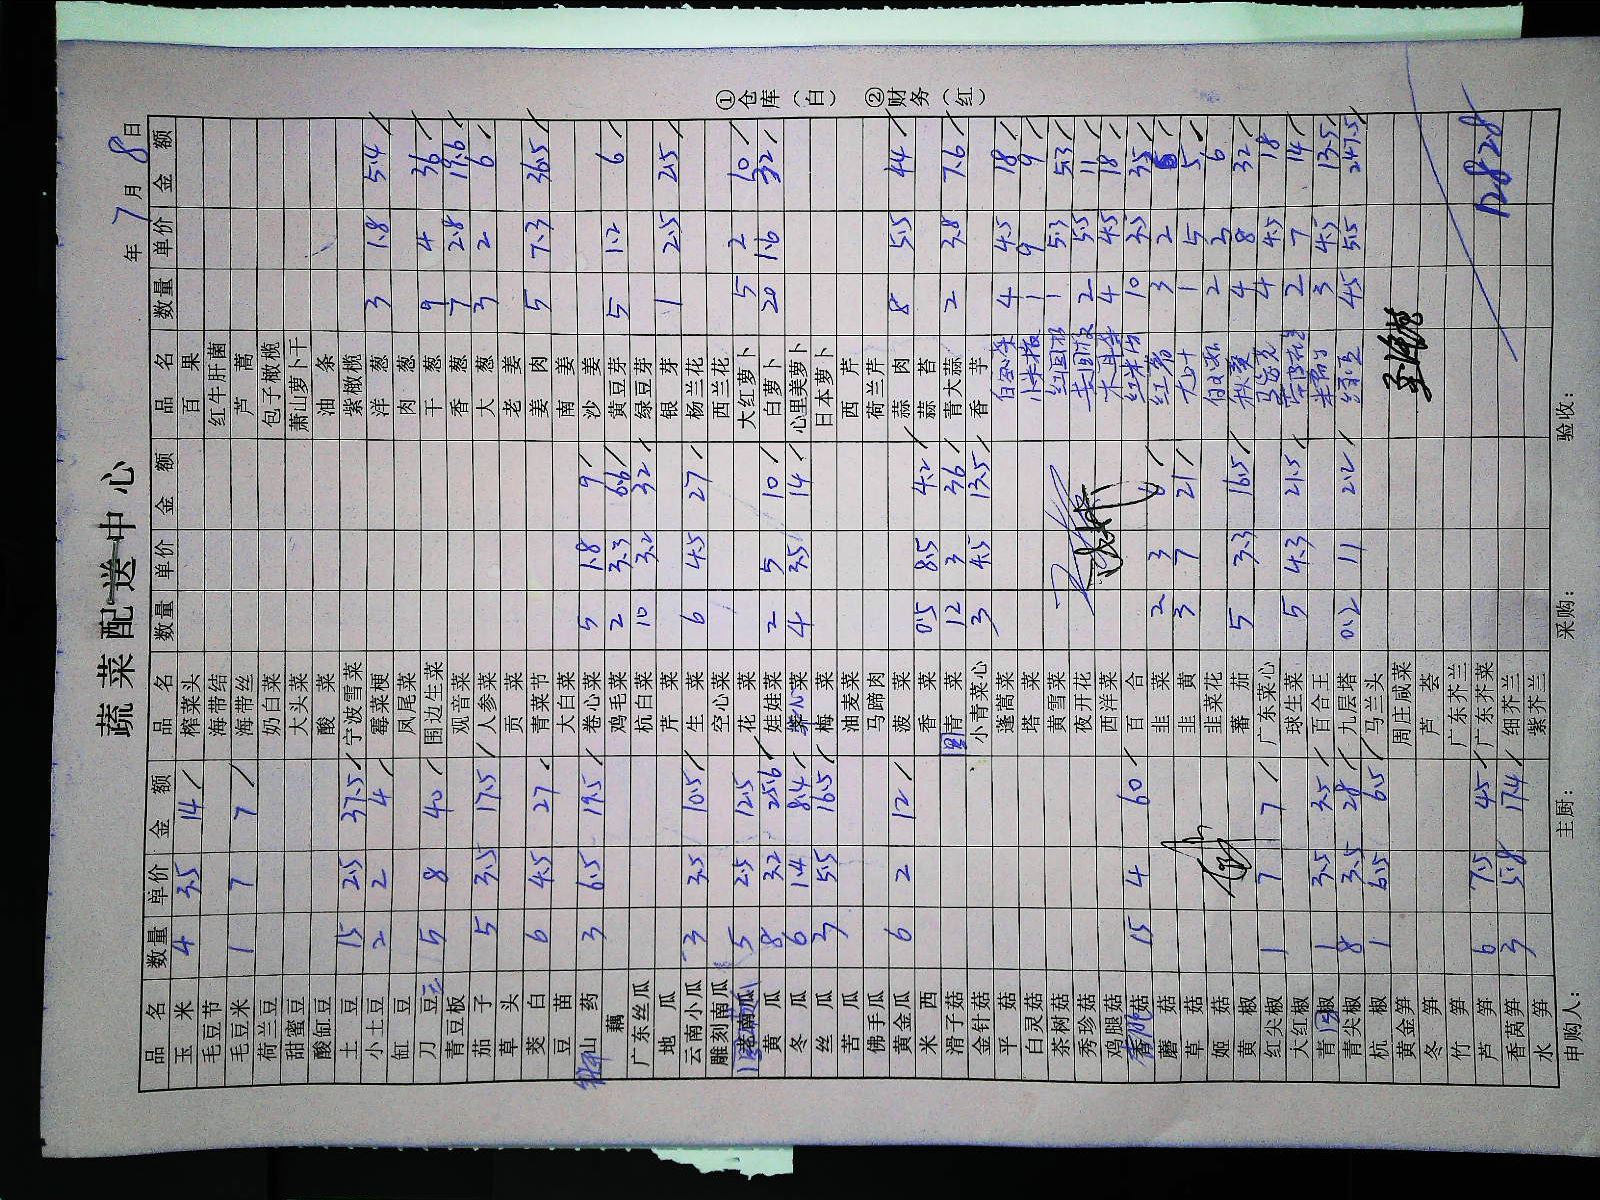 蔬菜配送中心
年 7 月 8 日
品名 数量 单价 金额 品名 数量 单价 金额 品名 数量 单价 金额
玉米 4 3.5 14 榨菜头 百果
毛豆节 海带结 红牛肝菌
毛豆米 1 7 7 海带丝 芦蒿
荷兰豆 奶白菜 包子橄榄
甜蜜豆 大头菜 萧山萝卜干
酸缸豆 酸菜 油条
土豆 15 2.5 37.5 宁波雪菜 紫橄榄
小土豆 2 2 4 霉菜梗 洋葱 3 1.8 5.4
缸豆 凤尾菜 肉葱
刀豆 5 8 40 围边生菜 干葱 9 4 36
青豆板 观音菜 香葱 7 2.8 19.6
茄子 5 3.5 17.5 人参菜 大葱 3 2 6
草头 贡菜 老姜
茭白 6 4.5 27 青菜节 姜肉 5 7.3 36.5
豆苗 大白菜 南姜
山药 3 6.5 19.5 卷心菜 5 1.8 9 沙姜
藕 鸡毛菜 2 3.3 6.6 黄豆芽 5 1.2 6
广东丝瓜 杭白菜 10 3.2 32 绿豆芽
地瓜 芹菜 银芽 1 2.5 2.5
云南小瓜 3 3.5 10.5 生菜 6 4.5 27 杨兰花
雕刻南瓜 空心菜 西兰花
老南瓜 5 2.5 12.5 花菜 大红萝卜 5 2 10
黄瓜 8 3.2 25.6 娃娃菜 2 5 10 白萝卜 20 1.6 32
冬瓜 6 1.4 8.4 菜心 4 3.5 14 心里美萝卜
丝瓜 3 5.5 16.5 梅菜 日本萝卜
苦瓜 油麦菜 西芹
佛手瓜 马蹄肉 荷兰芹
黄金瓜 6 2 12 菠菜 蒜肉 8 5.5 44
米西 香菜 0.5 8.5 4.2 蒜苔
滑子菇 青菜 12 3 36 青大蒜 2 3.8 7.6
金针菇 小青菜心 3 4.5 13.5 香芋
平菇 蓬蒿菜 4 4.5 18
白灵菇 塔菜 小米椒 1 9 9
茶树菇 黄雪菜 1 5.3 5.3
秀珍菇 夜开花 2 5.5 11
鸡腿菇 西洋菜 4 4.5 18
香菇 15 4 60 百合 10 3.5 35
蘑菇 韭菜 2 3 6 红薯 3 2 6
草菇 韭黄 3 7 21 1 5 5
姬菇 韭菜花 2 3 6
黄椒 番茄 5 3.3 16.5 秋葵 4 8 32
红尖椒 1 7 7 广东菜心 4 4.5 18
大红椒 球生菜 5 4.3 21.5 2 7 14
青椒 1 3.5 3.5 百合王 3 4.5 13.5
青尖椒 8 3.5 28 九层塔 0.2 11 2.2 45 5.5 247.5
杭椒 1 6.5 6.5 马兰头
黄金笋 周庄咸菜
冬笋 芦荟
竹笋 广东芥兰
芦笋 6 7.5 45 广东芥菜
香莴笋 3 5.8 17.4 细芥兰 1282.8
水笋 紫芥兰
申购人： 主厨： 采购： 验收：
①仓库（白） ②财务（红）